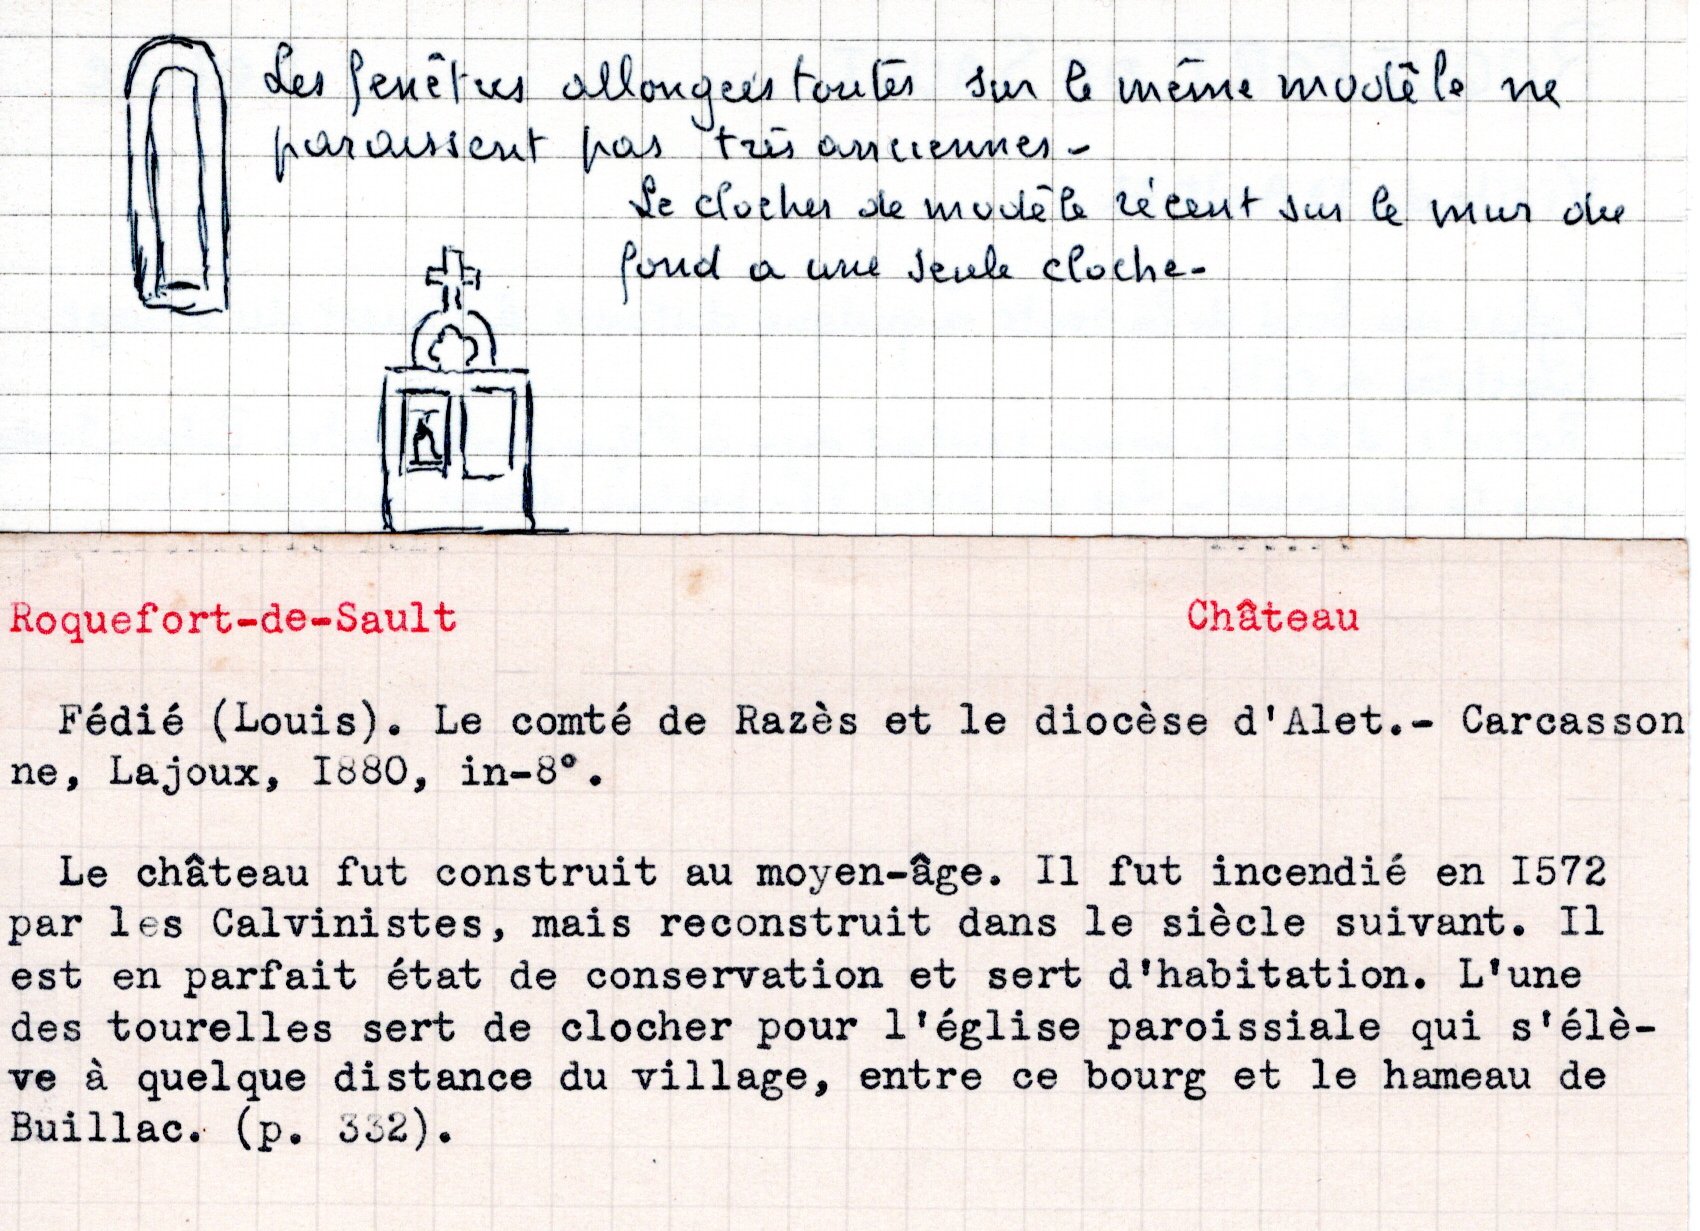 Les fenêtres allongées toutes sur le même modèle ne
paraissent pas très anciennes-
Le clocher de modèle récent sur le mur du
fond a une seule cloche-
Roquefort-de-Sault Château
Fédié (Louis). Le comté de Razès et le diocèse d'Alet.- Carcasson
ne, Lajoux, I880, in-8°.
Le château fut construit au moyen-âge. Il fut incendié en I572
par les Calvinistes, mais reconstruit dans le siècle suivant. Il
est en parfait état de conservation et sert d'habitation. L'une
des tourelles sert de clocher pour l'église paroissiale qui s'élè-
ve à quelque distance du village, entre ce bourg et le hameau de
Buillac. (p. 332).